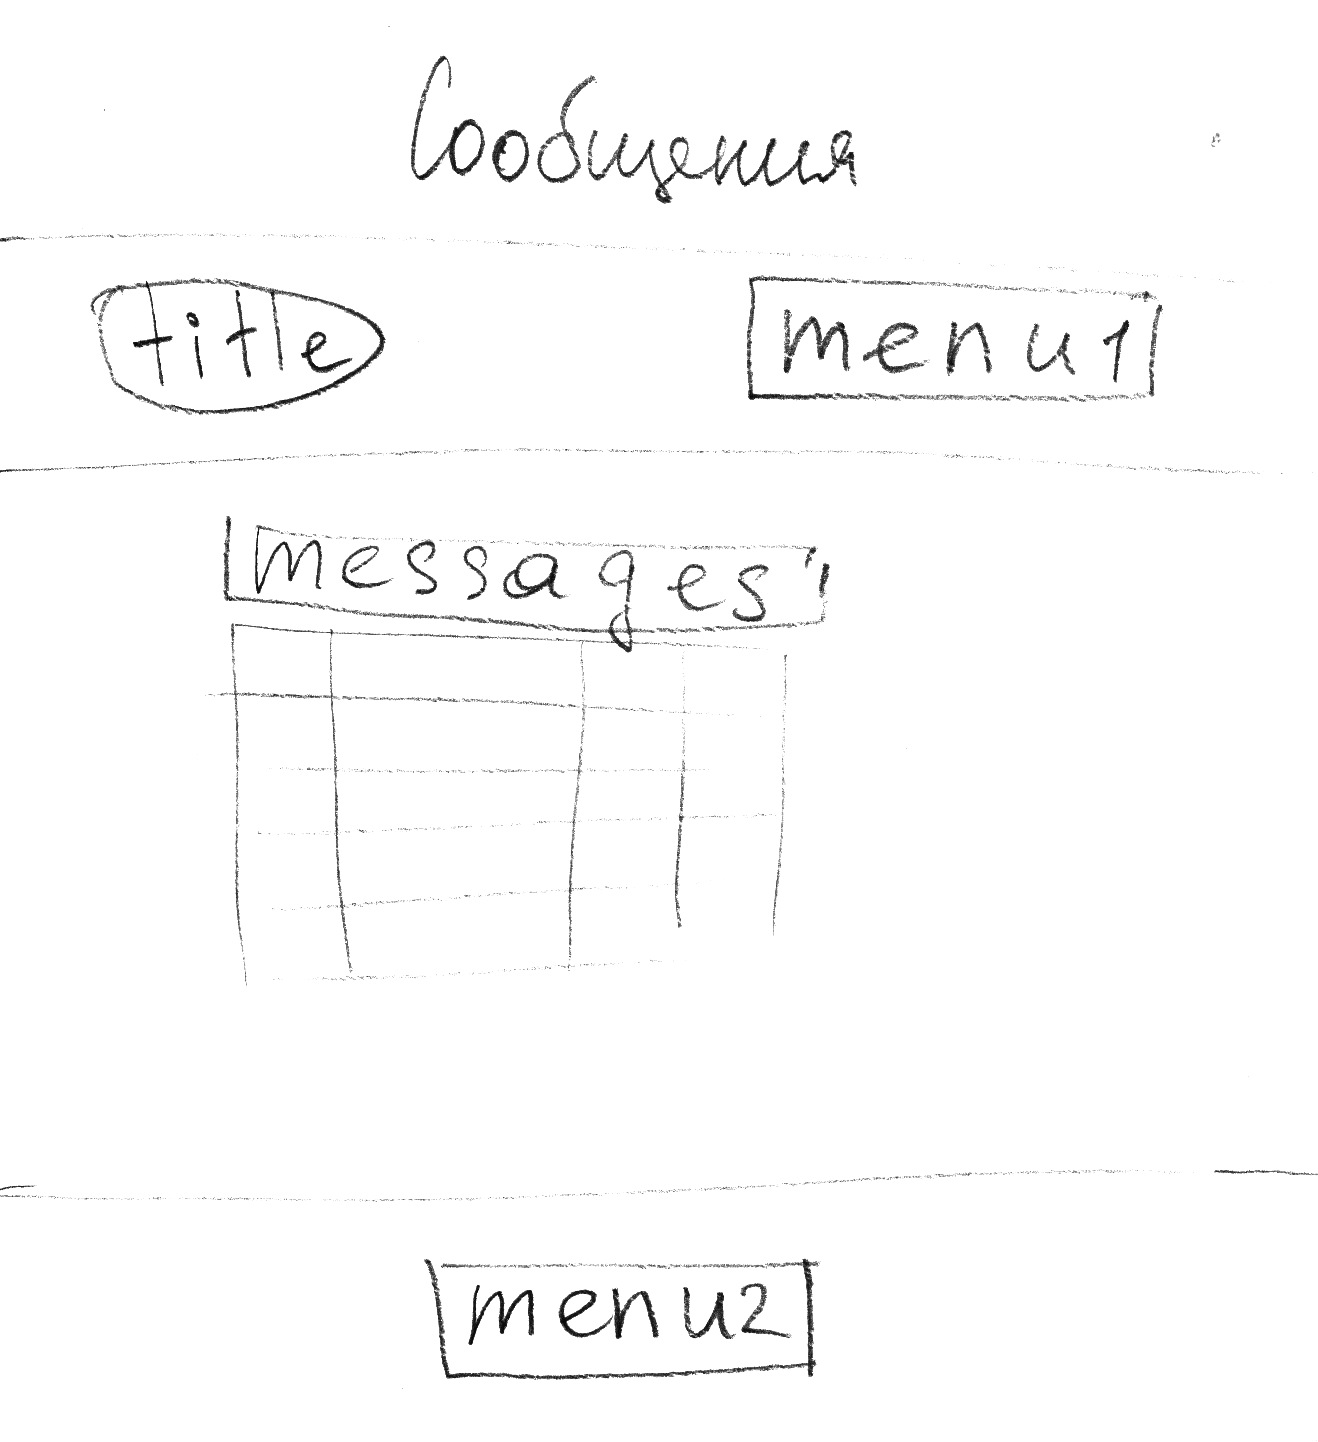 Сообщения
title
menu1
messages
menu2